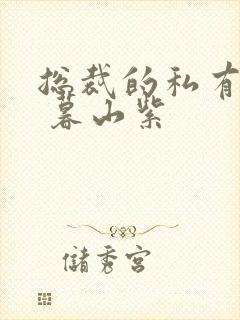 总裁的私有
暮山紫
储秀宫